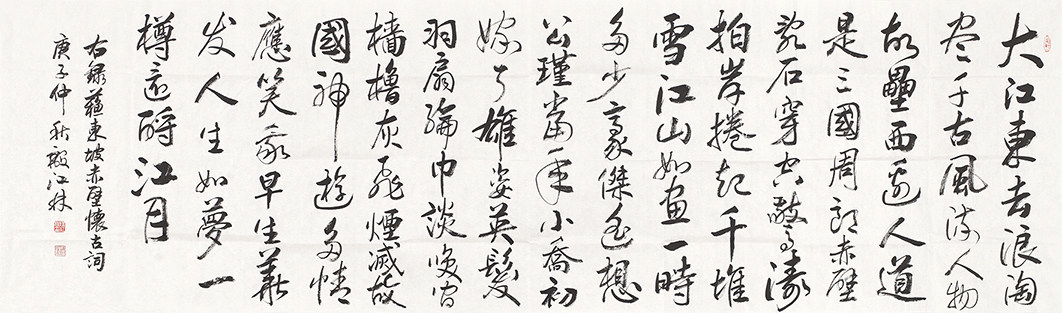 大江東去浪淘
尽千古風流人物
故壘西邊人道
是三國周郎赤壁
乱石穿空驚濤
拍岸捲起千堆
雪江山如畫一時
多少豪傑遙想
公瑾當年小喬初
嫁了雄姿英發
羽扇綸巾談笑間
檣櫓灰飛煙滅故
國神遊多情
應笑我早生華
发人生如夢一
樽還酹江月
右録蘇東坡赤壁懷古詞
庚子仲秋